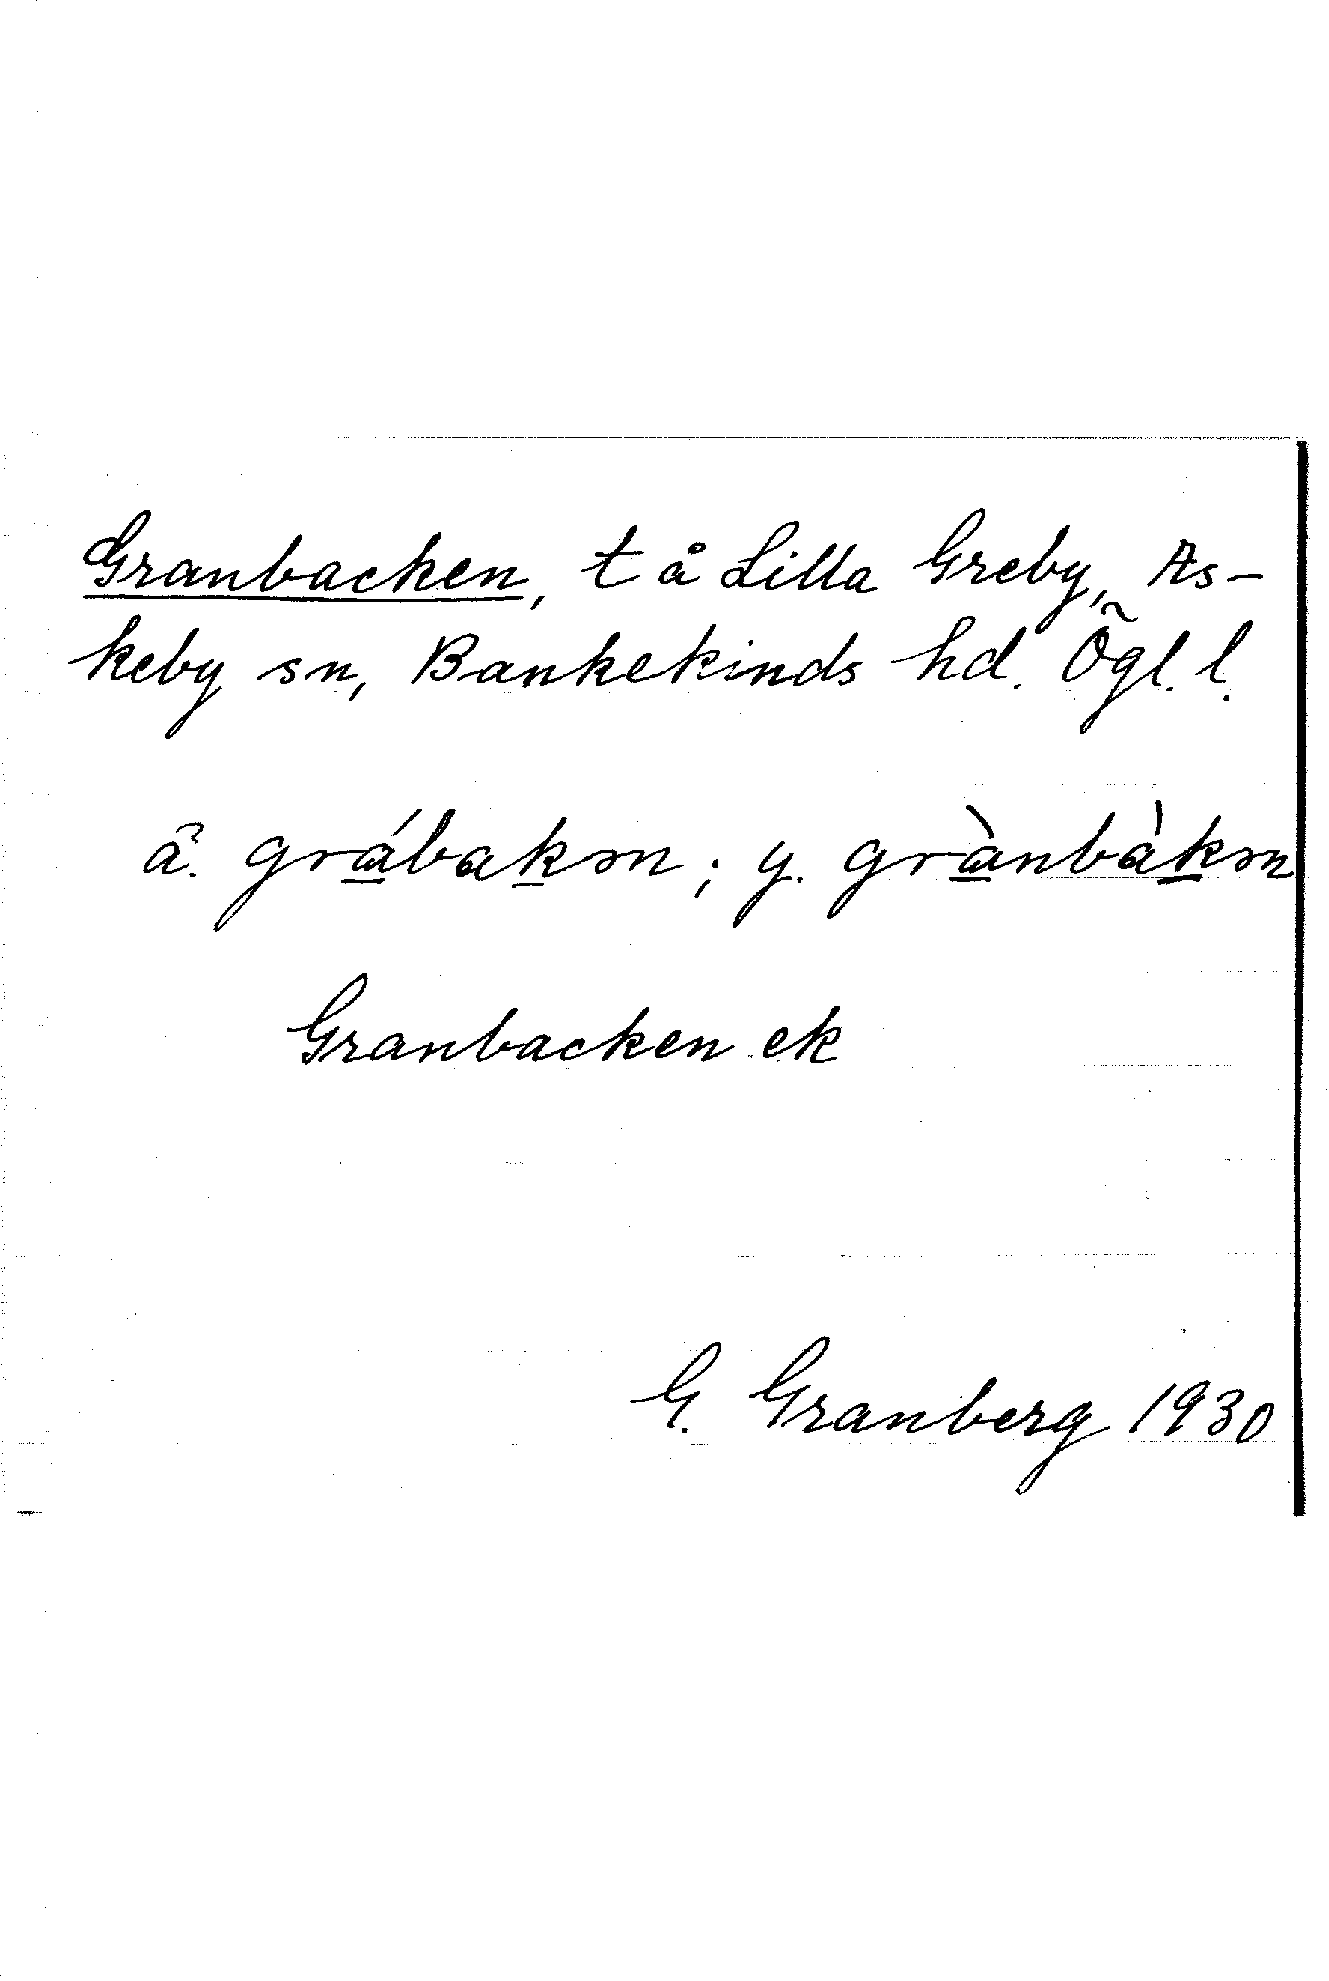 Granbacken, t å Lilla Greby, As-
keby sn, Bankekinds hd. Ögl. l.
ä. grábakm; y. grànbàkm
Granbacken ek
G. Granberg 1930